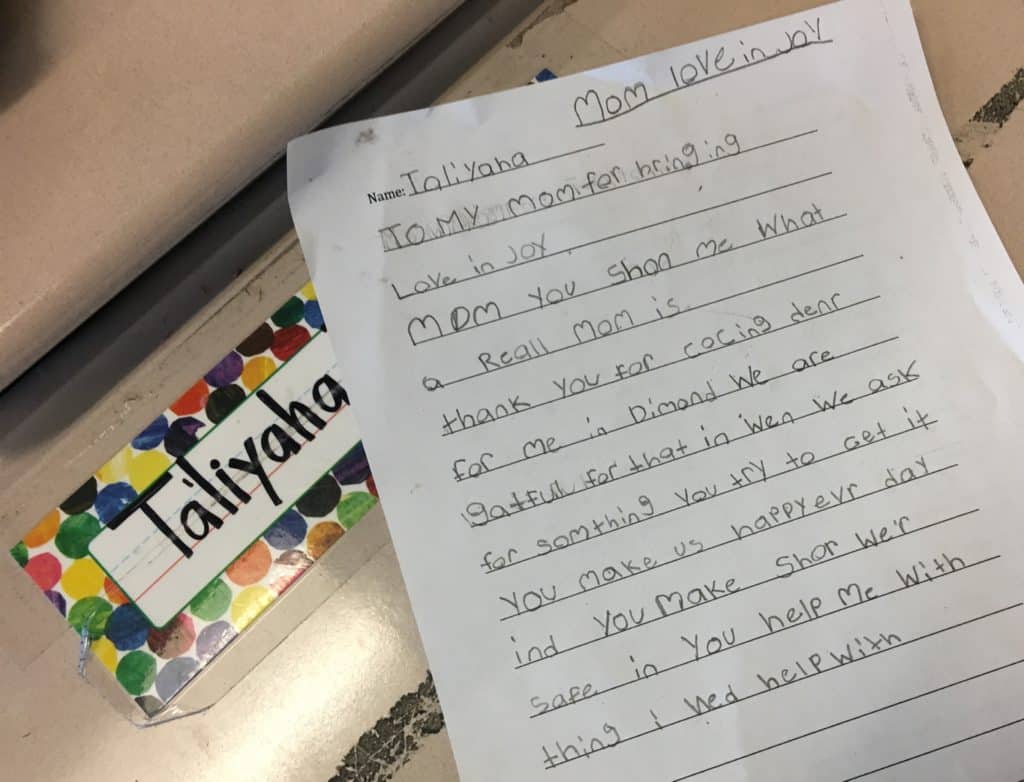 Mom love in Joy
Name: Taliyaha
To MY mom for bringing
Love in Joy.
MOM You Shon me What
a Reall Mom is.
thank You for cocing denr
for me in Dimond We are
gatful for that in Wen We ask
for somthing You try to get it
You make us happy evr day
ind You Make Shor We'r
safe in You help Me With
thing i ned help With
Taliyaha